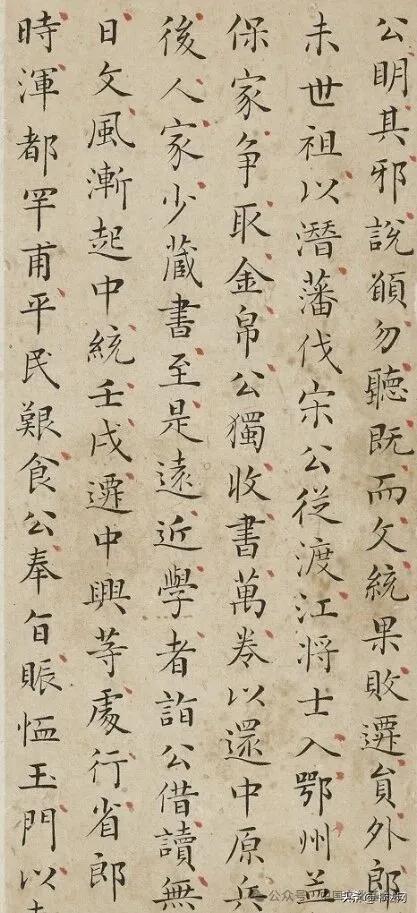 公明其邪說願勿聽既而文統果敗遷貟外郎
未世祖以潛藩伐宋公從渡江将士入鄂州並
保家争取金帛公獨收書萬卷以還中原兵
後人家少藏書至是遠近學者詣公借讀無
日文風漸起中統壬戌遷中興等處行省郎
時渾都罕甫平民艱食公奉旨賑恤玉門以